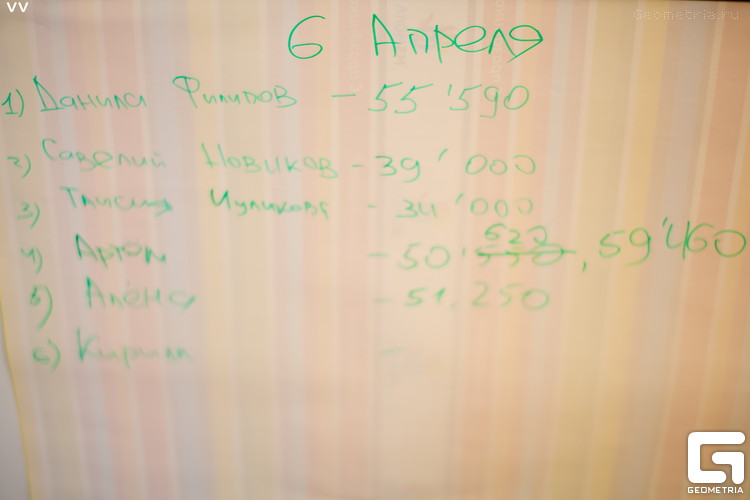 VV
Geometria.ru
6 Апреля
1) Данила Филипов - 55'590
2) Савелий Новиков - 39'000
3) Таисия - 34'000
4) Артом - 50' 522, 59'460
5) Алёна - 51.250
6) Кирилл -
GEOMETRIA